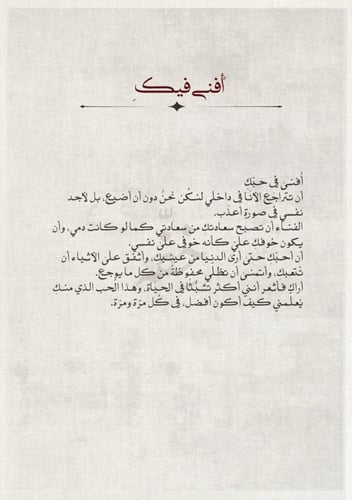 أفنى فيكِ
أفنى في حبّك
أن تتراجع الأنا في داخلي لتسكن نحنُ دون أن أضيع، بل لأجد
نفسي في صورةٍ أعذب.
الفناء أن تصبح سعادتك من سعادتي كما لو كانت دمي، وأن
يكون خوفك عليّ كأنه خوفي على نفسي.
أن أحبّك حتى أرى الدنيا من عينيك، وأشفق على الأشياء أن
تُتعبك، وأتمنى أن تظلي محفوظة من كل ما يوجع.
أراكِ فأشعر أنني أكثر تشبثًا في الحياة، وهذا الحب الذي منكِ
يعلمني كيف أكون أفضل، في كل مرة ومرة.